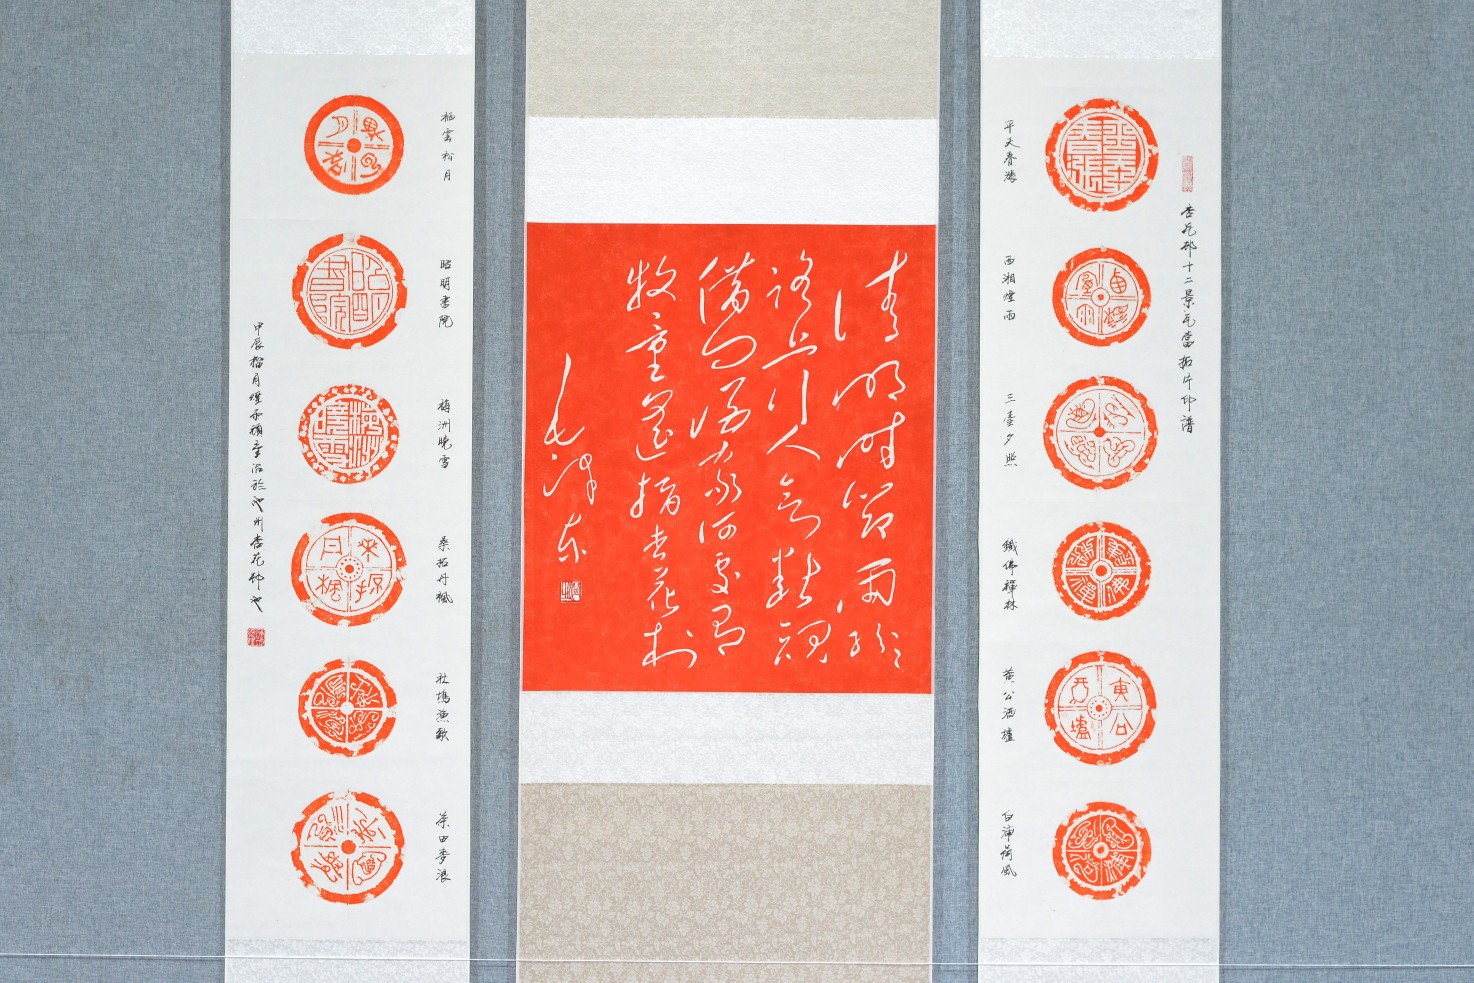 杏花邨十二景瓦當拓片印譜
平天春漲
西湘煙雨
三臺夕照
鐵佛禪林
黄公酒壚
白浦荷風
清明时节雨纷纷
路上行人欲断魂
借问酒家何处有
牧童遥指杏花村
毛泽东
栖雲松月
昭明書院
梅洲曉雪
桑柘丹楓
杜塢漁歌
茶田麥浪
甲辰榴月煙雨頑童治於池州杏花邨也